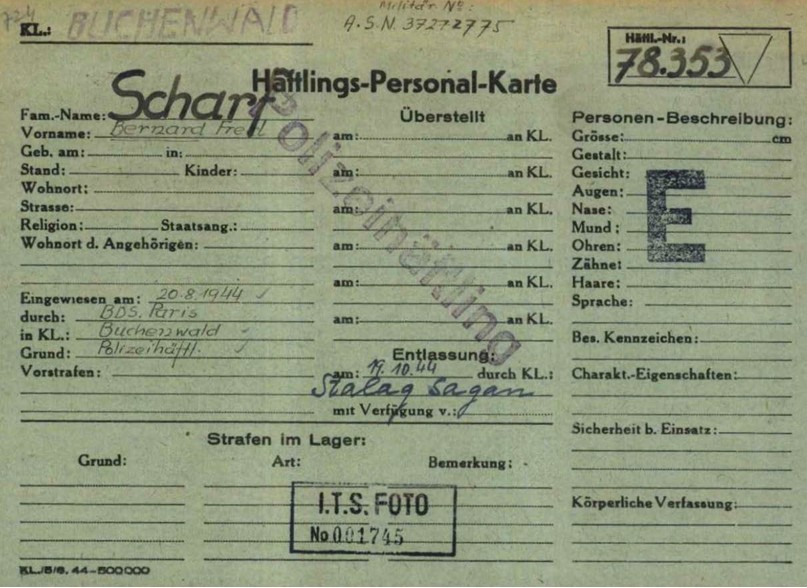 724
Militär No:
A.S.N. 37272775
KL.: BUCHENWALD
Häftl.-Nr.:
78.353
Häftlings-Personal-Karte
Fam.-Name: Scharf
Vorname: Bernard
Geb. am: in:
Stand: Kinder:
Wohnort:
Strasse:
Religion: Staatsang.:
Wohnort d. Angehörigen:
Eingewiesen am: 20.8.1944
durch: BDS. Paris
in KL.: Buchenwald
Grund: Polizeihäftl.
Vorstrafen:
Polizeihäftling
Überstellt
am: an KL.
am: an KL.
am: an KL.
am: an KL.
am: an KL.
am: an KL.
Entlassung:
am: 19.10.44 durch KL.:
Stalag Sagan
mit Verfügung v.:
Personen-Beschreibung:
Grösse: cm
Gestalt:
Gesicht:
Augen:
Nase:
Mund:
Ohren:
Zähne:
Haare:
Sprache:
E
Bes. Kennzeichen:
Charakt.-Eigenschaften:
Sicherheit b. Einsatz:
Körperliche Verfassung:
Strafen im Lager:
Grund: Art: Bemerkung:
I.T.S. FOTO
No 001745
KL./5/6. 44-500000